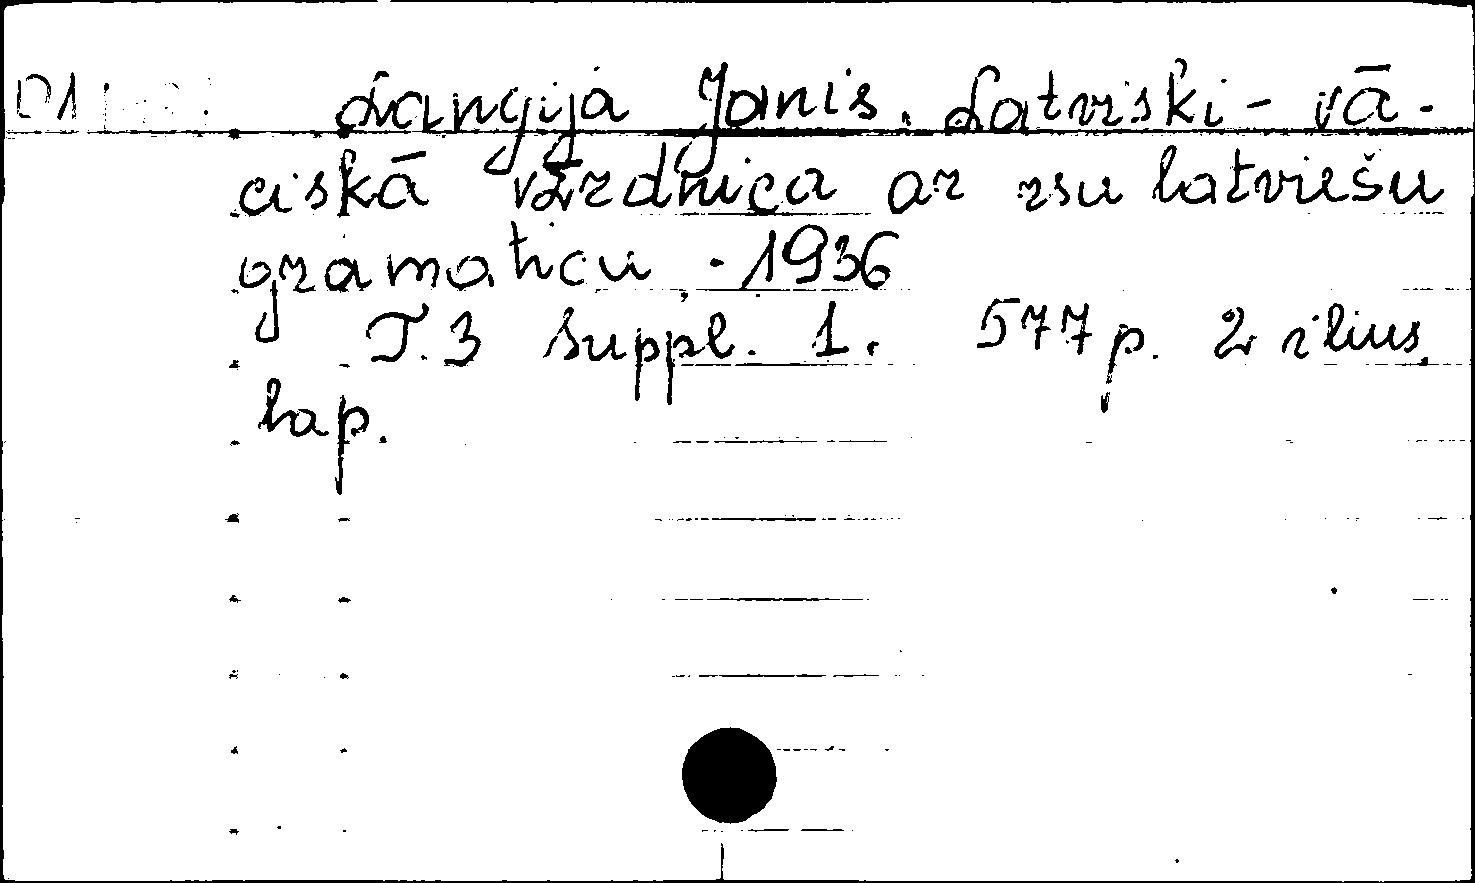 D1 Langija Janis. Latviski - vā-
ciskā vārdnica ar isu latviešu
gramaticu. - 1936
T. 3 suppl. 1. 577 p. 2 ilius.
lap.